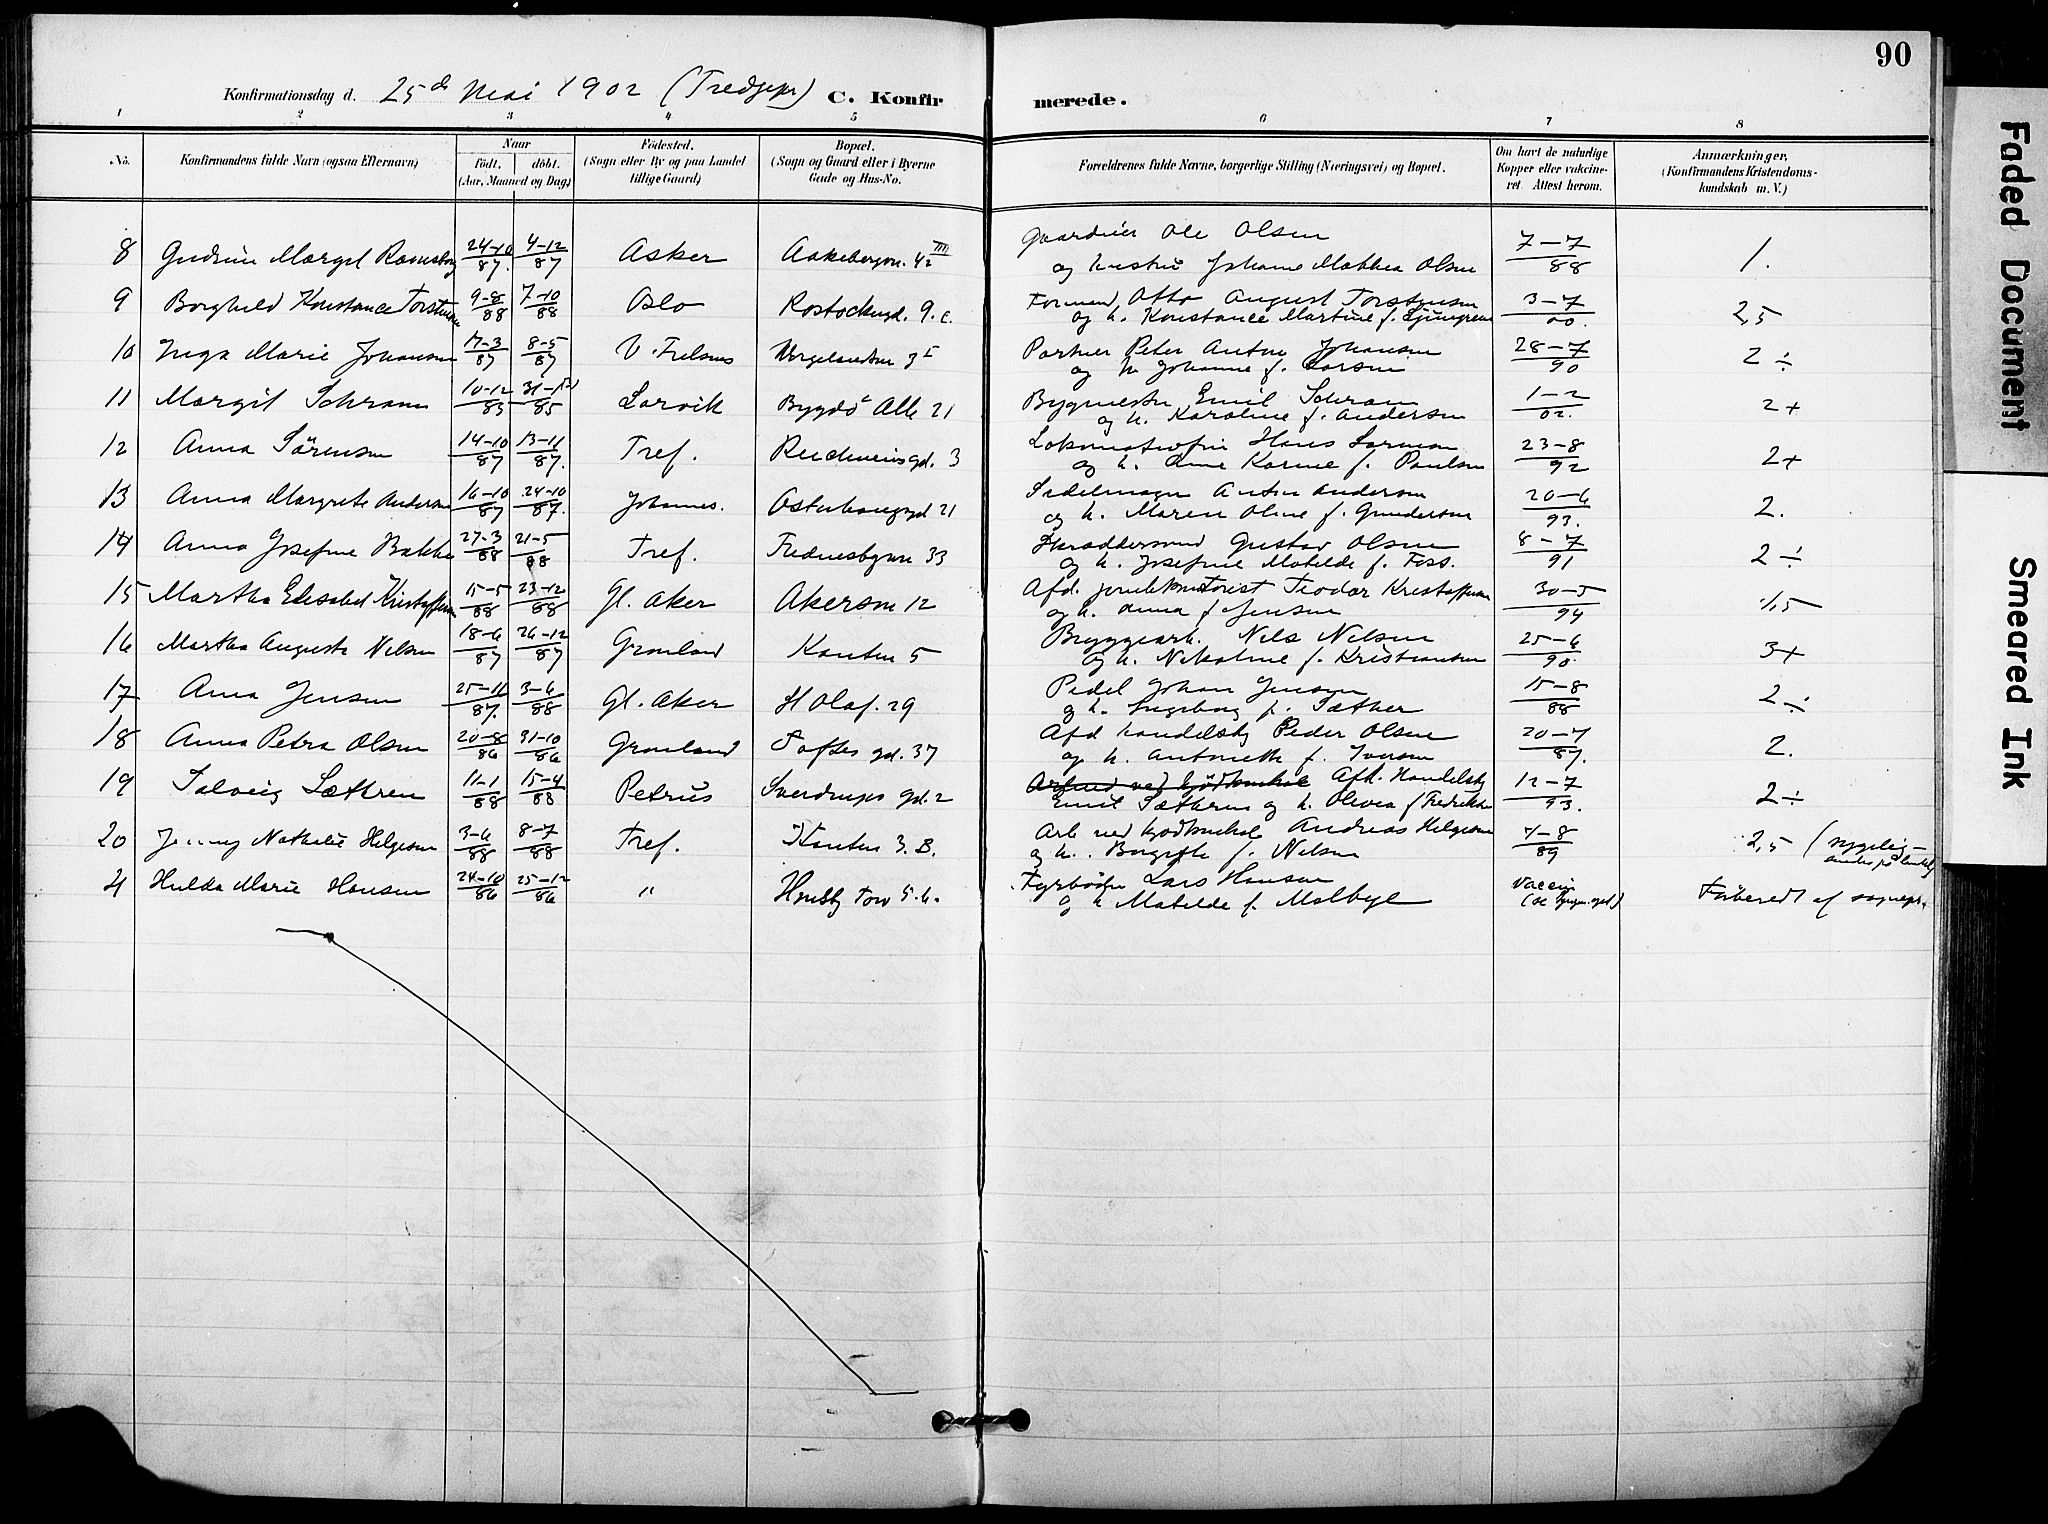 90
Konfirmationsdag d. 25de Mai 1902 C. Konfirmerede.
1 2 3 4 5 6 7 8
No. Konfirmandens fulde Navn (ogsaa Efternavn) Naar født. døbt. (Aar, Maaned og Dag) Fødested. (Sogn eller By og paa Landet tillige Gaard) Bopæl. (Sogn og Gaard eller i Byerne Gade og Hus-No. Forældrenes fulde Navne, borgerlige Stilling (Næringsvei) og Bopæl. Om havt de naturlige Kopper eller vakcineret. Attest herom. Anmærkninger. (Konfirmandens Kristendomskundskab m. V.)
8 Gudrun Margit 24-10/87. 4-12/87 Asker Aakebergvn. 42 III Gaardeier Ole Olsen 7-7/88 1.
og hustru Johanne Mathea Olsen
9 Borghild Konstance Torstensen 9-8/88 7-10/88 Oslo Rostocksgd. 9.c. Formand Otto August Torstensen 3-7/00. 2,5
og h. Konstance Martine f. Ljungren
10 Inga Marie Johansen 17-3/87 8-5/87 V. Frelsers Vergelandsvn 3 I Portner Peter Anton Johansen 28-7/90 2 ÷
og h. Johanne f. Larsen
11 Margit Schram 10-12 31-12/85 Larvik Bygdø Alle 21 Bygmester Emil Schram 1-2/02. 2+
og h. Karoline f. Andersen
12 Anna Sørensen 14-10/87 13-11/87. Tref. gd. 3 Hans 23-8/92 2+
og h. Anne Karine f. Paulsen
13 Anna Margrete Andersen 16-10/87 24-10/87. Johannes. Østerhausgd 21 Sadelmager Anton Andersen 20-6/93. 2.
og h. Maren Oline f. Gundersen
14 Anna Josefine Bakke 27-3/88 21-5/88 Tref. Fredensborgvn 33 Skræddersvend Gustav Olsen 8-7/91 2 ÷
og h. Josefine Matilde f. Foss.
15 Martha Elisabet Kristoffersen 15-5/88 23-12/88 Gl. Aker Akersvn 12 Afd. Teodor Kristoffersen 30-5/94 1,5
og h. Anna f Jensen
16 Martha Augusta Nilsen 18-6/87 26-12/87 Grønland Kanten 5 Bryggearb. Nils Nilsen 25-6/90. 3+
og h. Nikoline f. Kristiansen
17 Anna Jensen 25-11/87. 3-6/88 Gl. Aker St Olaf. 29 Pedel Johan Jensen 15-8/88 2 ÷
og h. Ingeborg f. Sæther
18 Anna Petra Olsen 20-8/86 31-10/86 Grønland Toftes gd. 37 Afd Handelsb Peder Olsen 20-7/87. 2.
og h. Antonette f. Iversen
19 Solveig Sæthren 11-1/88 15-4/88 Petrus Sverdrups gd. 2 Afd. Handelsb 12-7/93. 2 ÷
Emil Sæthren og h. Olivia f Fredriksen
20 Jenny Nathalie Helgesen 3-6/88 8-7/88 Tref. Kanten 3. B. Arb ved Andreas Helgesen 7-8/89 2,5 (sygelig—
og h. f. Nilsen
21 Hulda Marie Hansen 24-10/86 25-12/86 " Torv 5. Fyrbøder Lars Hansen Vaccin Forberedt af sognepr.
og h Matilde f. Malbyl
Faded Document
Smeared Ink